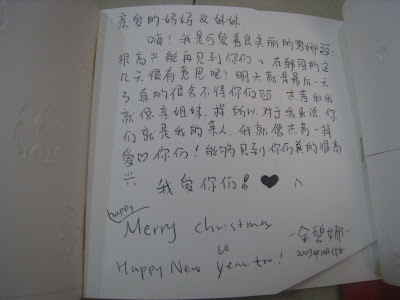 亲爱的妈妈&妹妹
嗨！我是可爱善良美丽的碧娜
很高兴能再见到你们。在韩国的这
几天很有意思吧？明天就是最后一天
了真的很舍不得你们 我
就像亲姐妹一样所以对于我来说你
们就是我的亲人，我就像 一样
爱♡你们！能够见到你们真的很高
兴 我爱你们！♥ ^
happy
Merry christmas
&
Happy New year too!
-金碧娜-